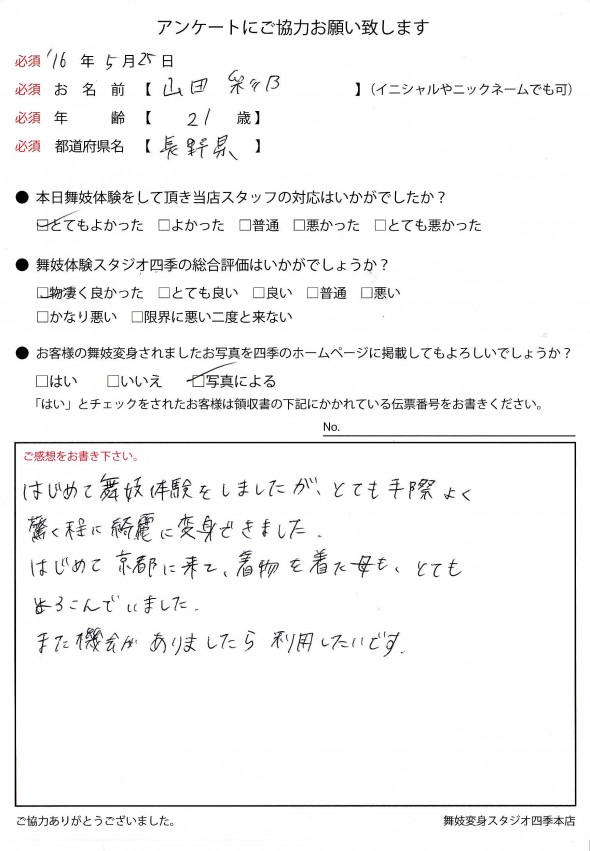 アンケートにご協力お願い致します
必須 '16 年 5 月 25 日
必須 お 名 前 【 山田 】（イニシャルやニックネームでも可）
必須 年 齢 【 21 歳】
必須 都道府県名 【 長野県 】
● 本日舞妓体験をして頂き当店スタッフの対応はいかがでしたか？
□とてもよかった □よかった □普通 □悪かった □とても悪かった
● 舞妓体験スタジオ四季の総合評価はいかがでしょうか？
□物凄く良かった □とても良い □良い □普通 □悪い
□かなり悪い □限界に悪い二度と来ない
● お客様の舞妓変身されましたお写真を四季のホームページに掲載してもよろしいでしょうか？
□はい □いいえ □写真による
「はい」とチェックをされたお客様は領収書の下記にかかれている伝票番号をお書きください。
No.
ご感想をお書き下さい。
はじめて舞妓体験をしましたが、とても手際よく
驚く程に綺麗に変身できました.
はじめて京都に来て、着物を着た母も、とても
よろこんでいました.
また機会がありましたら利用したいです.
ご協力ありがとうございました。
舞妓変身スタジオ四季本店